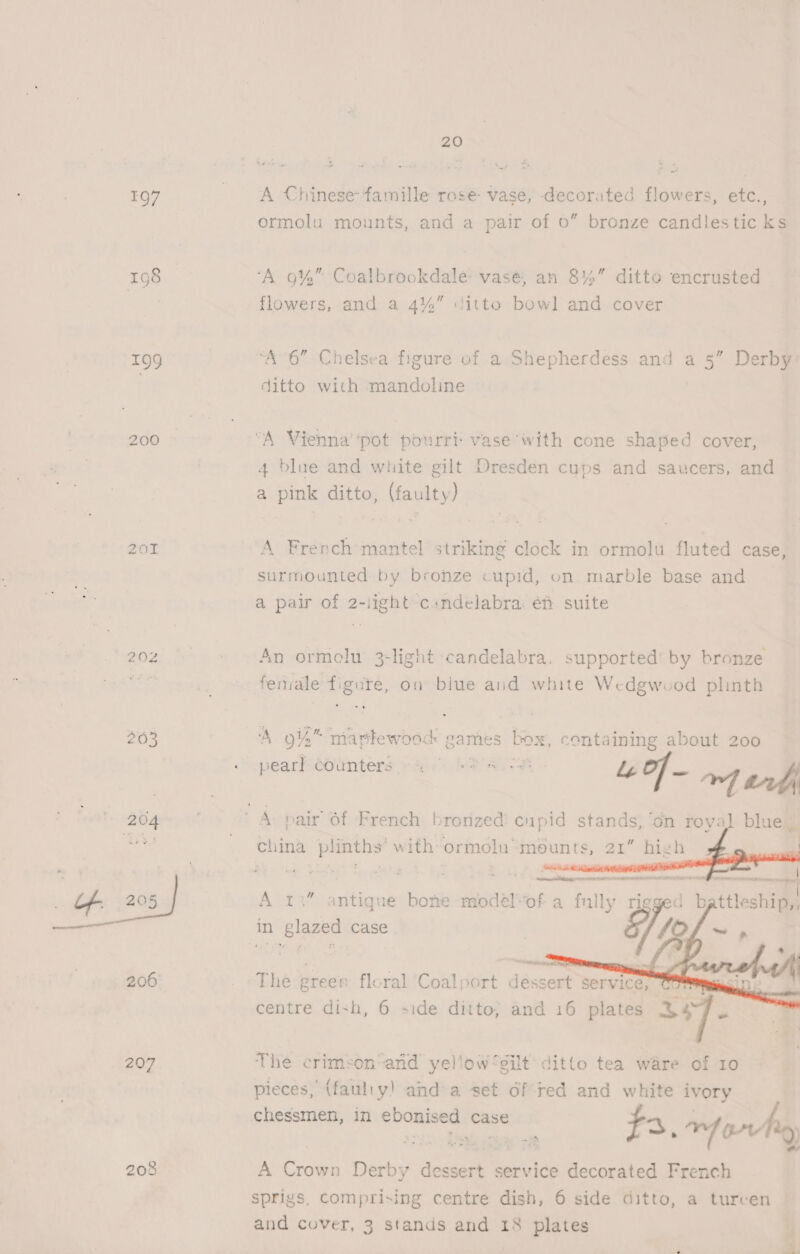 20
197 A Chinese famille rose vase, decorated flowers, etc.,
ormolu mounts, and a pair of 9" bronze candlestic ks
198 A 9½" Coalbrookdale vase, an 8½" ditto encrusted
flowers, and a 4½" ditto bowl and cover
199 A 6" Chelsea figure of a Shepherdess and a 5" Derby
ditto with mandoline
200 A Vienna pot pourri vase with cone shaped cover,
4 blue and white gilt Dresden cups and saucers, and
a pink ditto, (faulty)
201 A French mantel striking clock in ormolu fluted case,
surmounted by bronze cupid, on marble base and
a pair of 2-light candelabra en suite
202 An ormolu 3-light candelabra, supported by bronze
female figure, on blue and white Wedgwood plinth
203 A 9½" maplewood games box, containing about 200
pearl counters
204 A pair of French bronzed cupid stands, on royal blue
china plinths with ormolu mounts, 21" high
205 A antique bone model of a fully rigged battleship,
in glazed case
206 The green floral Coalport dessert service,
centre dish, 6 side ditto, and 16 plates
207 The crimson and yellow gilt ditto tea ware of 10
pieces, (faulty) and a set of red and white ivory
chessmen, in ebonised case
208 A Crown Derby dessert service decorated French
sprigs, comprising centre dish, 6 side ditto, a tureen
and cover, 3 stands and 18 plates